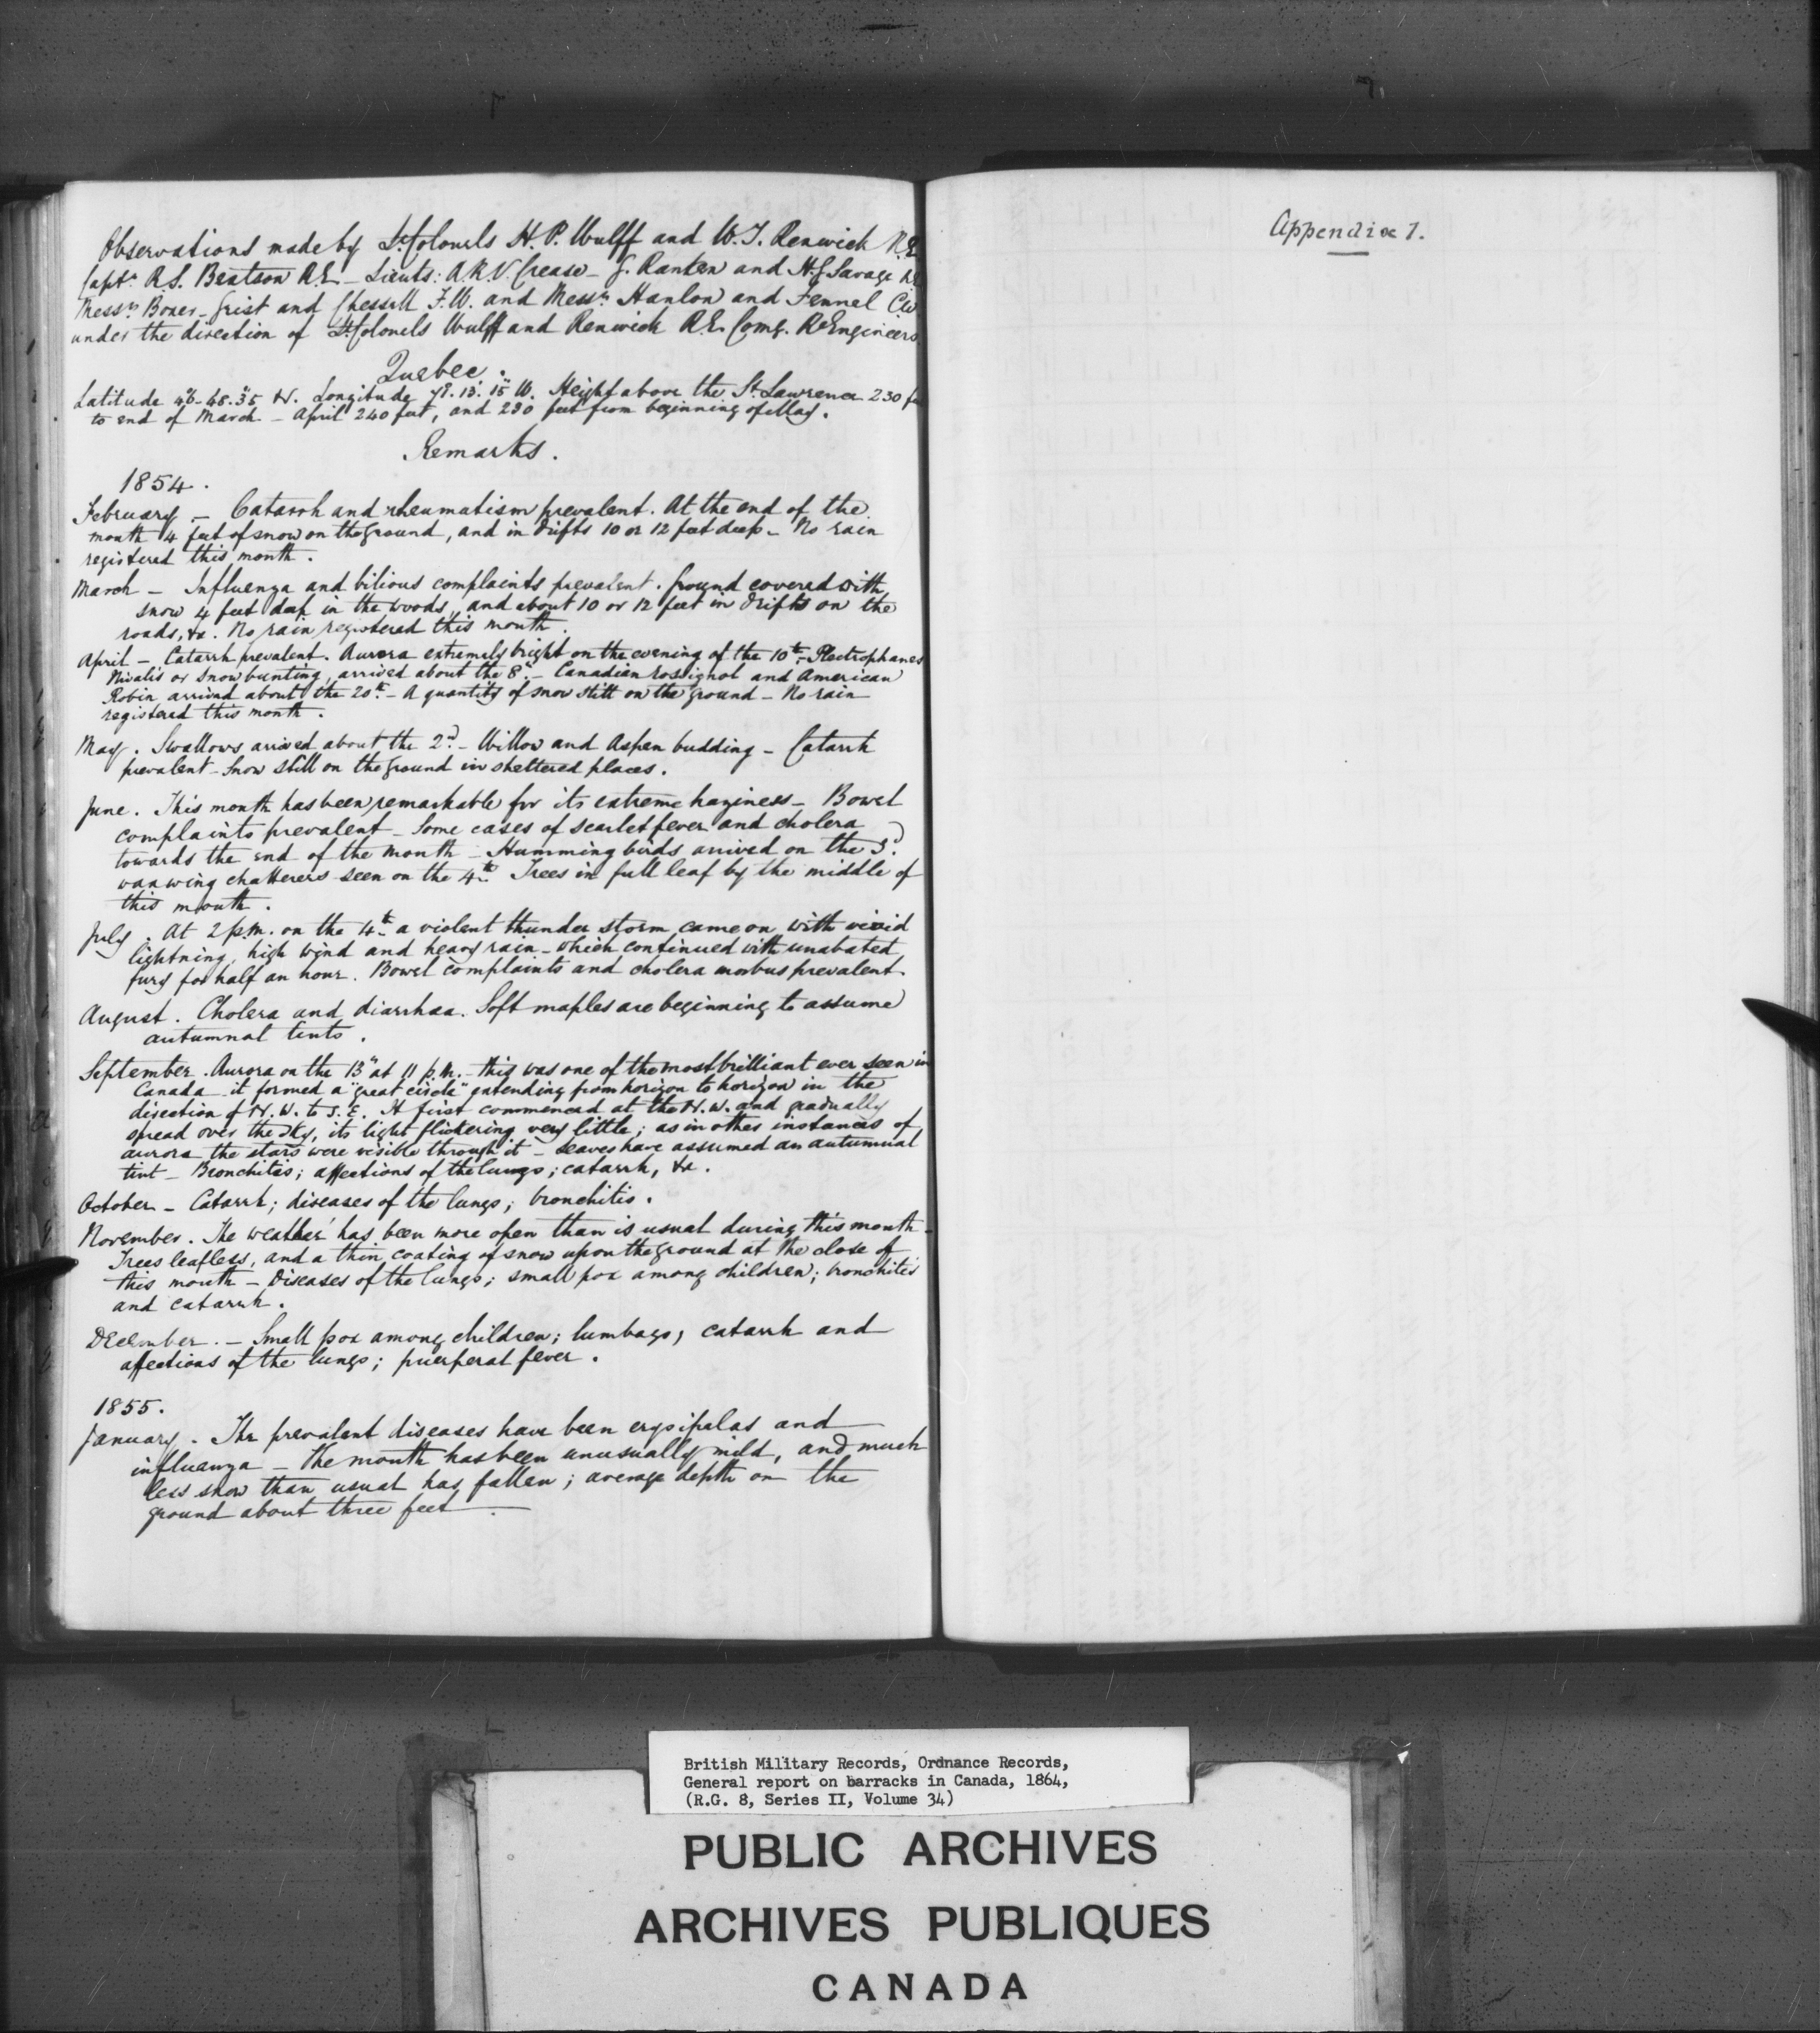 Observations made by Lt. Colonels H. P. Wulff and W. T. Renwick R.E
Captn. R. S. Beatson R.E. - Lieuts: A.R.V. Crease - G. Ranken and H. J. Savage R.E
Messrs. Boxer - Grist and Chessell F.W. and Messrs. Hanlon and Fennel C.W
under the direction of Lt. Colonels Wulff and Renwick R.E. Comg. Rl. Engineers
Quebec.
Latitude 46°-48'.35" N. Longitude 71°.13'.15" W. Height above the St. Lawrence 230 fee
to end of March - April 240 feet, and 230 feet from beginning of May.
Remarks.
1854.
February - Catarrh and rheumatism prevalent. At the end of the
month 4 feet of snow on the ground, and in drifts 10 or 12 feet deep - No rain
registered this month.
March - Influenza and bilious complaints prevalent. Ground covered with
snow 4 feet deep in the woods, and about 10 or 12 feet in drifts on the
roads, &c. No rain registered this month.
April - Catarrh prevalent. Aurora extremely bright on the evening of the 10th - Plectrophanes
Nivalis or snow bunting, arrived about the 8th - Canadian rossignol and American
Robin arrived about the 20th - A quantity of snow still on the ground - No rain
registered this month.
May. Swallows arrived about the 2d. - Willow and Aspen budding - Catarrh
prevalent - Snow still on the ground in sheltered places.
June. This month has been remarkable for its extreme haziness - Bowel
complaints prevalent - Some cases of scarlet fever and cholera
towards the end of the month - Humming birds arrived on the 3d.
waxwing chatterers seen on the 4th. Trees in full leaf by the middle of
this month.
July. At 2 p.m. on the 4th. a violent thunder storm came on with vivid
lightning, high wind and heavy rain - which continued with unabated
fury for half an hour. Bowel complaints and cholera morbus prevalent.
August. Cholera and diarrhœa. Soft maples are beginning to assume
autumnal tints.
September. Aurora on the 13th at 11 p.m. - this was one of the most brilliant ever seen in
Canada - it formed a "great circle" extending from horizon to horizon in the
direction of N.W. to S.E. It first commenced at the N.W. and gradually
spread over the sky, its light flickering very little; as in other instances of
aurora the stars were visible through it - leaves have assumed an autumnal
tint - Bronchitis; affections of the lungs; catarrh, &c.
October - Catarrh; diseases of the lungs; bronchitis.
November. The weather has been more open than is usual during this month -
Trees leafless, and a thin coating of snow upon the ground at the close of
this month - Diseases of the lungs; small pox among children; bronchitis
and catarrh.
December. - Small pox among children; lumbago, catarrh and
affections of the lungs; puerperal fever.
1855.
January. The prevalent diseases have been erysipelas and
influenza - The month has been unusually mild, and much
less snow than usual has fallen; average depth on the
ground about three feet.
Appendix 7.
British Military Records, Ordnance Records,
General report on barracks in Canada, 1864,
(R.G. 8, Series II, Volume 34)
PUBLIC ARCHIVES
ARCHIVES PUBLIQUES
CANADA